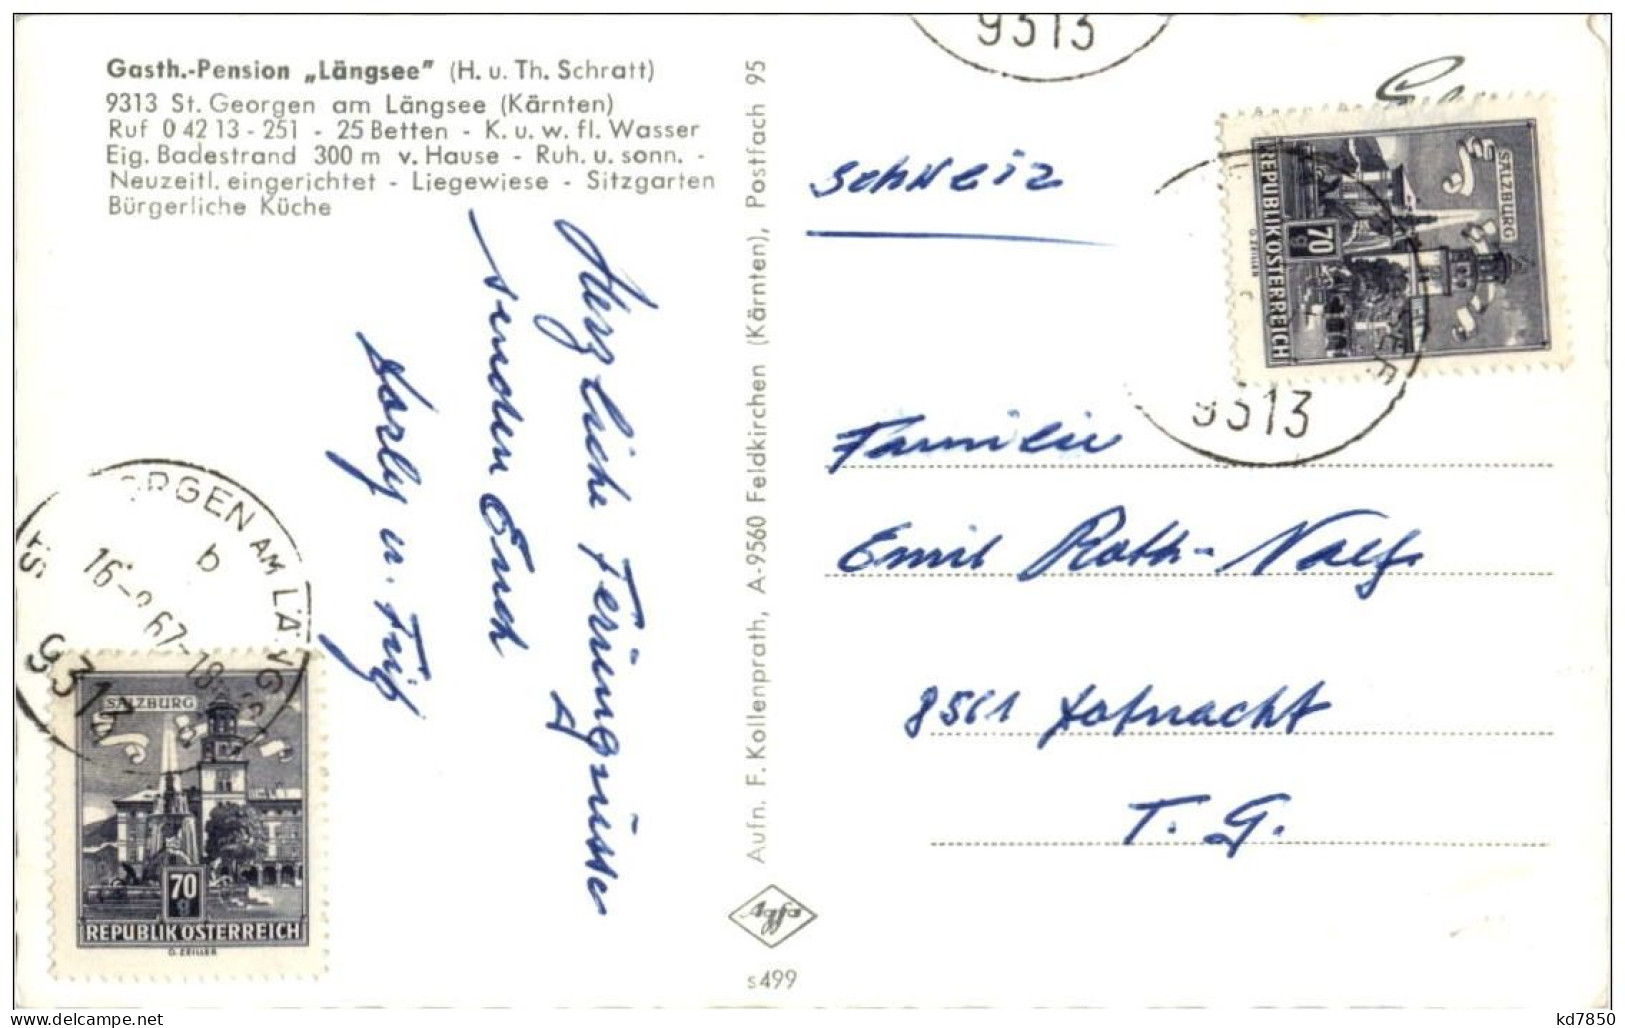 Gasth.-Pension „Längsee” (H. u. Th. Schratt)
9313 St. Georgen am Längsee (Kärnten)
Ruf 0 42 13 - 251 - 25 Betten - K. u. w. fl. Wasser
Eig. Badestrand 300 m v. Hause - Ruh. u. sonn. -
Neuzeitl. eingerichtet - Liegewiese - Sitzgarten
Bürgerliche Küche
Herzliche Feriengrüsse
senden Euch
u. Fritz
Aufn. F. Kollenprath, A-9560 Feldkirchen (Kärnten), Postfach 95
Agfa
s499
9313
Schweiz
SALZBURG
70
g
REPUBLIK ÖSTERREICH
G. ZEILLER
9313
Familie
Emil Roth-Naef
8561 Hofnacht
T. G.
ORGEN AM LÄNG
b
67-18
9313
SALZBURG
70
g
REPUBLIK ÖSTERREICH
G. ZEILLER
kd7850
delcampe.net